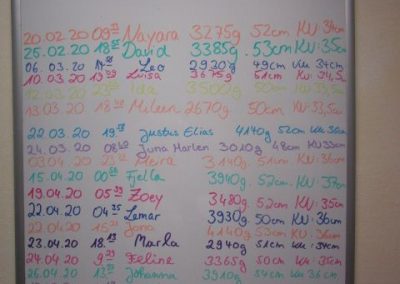 20.02.20 09 Nayara 3275g 52cm KU: 34cm
25.02.20 18 David 3385g. 53cm KU: 35cm
06 03.20 Leo 2930g 49cm KU 34cm
10 03.20 19 Luisa 3675g 51cm KU: 34,5
12.03.20 23 Ida 3500g 50cm
13.03.20 18 Mileen 2670g 50cm KU: 33,5cm
22.03.20 19 Justus Elias 4140g 52cm KU
24.03.20 08 Juna Marlen 3010g 48cm KU 33cm
03.04.20 23 Meira 3140g. 51cm KU: 36cm
15.04.20 00 Fjella 3940g. 52cm. KU: 37cm
19.04.20 05 Zoey 3480g 52cm KU: 35cm
22.04.20 04 Lemar 3930g 50cm KU: 36cm
22.04.20 15 Jona 4140g 53cm KU: 36cm
23.04.20 18 Marla 2940g 51cm KU: 34cm
24.04.20 19 Feline 3365g 50cm KU: 35cm
26.04.20 13 Johanna 3910g 54cm KU 36cm